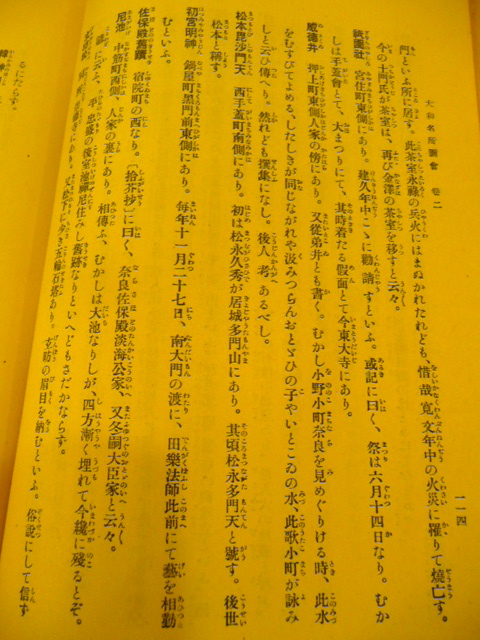 大和名所圖會 卷二
一一四
門といふ所に居す。此茶室永祿の兵火にはまぬかれたれども、惜哉寬文年中の火災に罹りて燒亡す。
今の土門氏が茶室は、再び金澤の茶室を移すと云々。
祇園社 宮住町東側にあり。建久年中こゝに勸請すといふ。或記に曰く、祭は六月十四日なり。むか
しは手蓋會とて、大まつりにて、其時着たる假面とて今東大寺にあり。
威德井 押上町東側人家の傍にあり。又從弟井とも書く。むかし小野小町奈良を見めぐりける時、此水
をむすびてよめる、したしきが同じながれや汲みつらんおとゞひの子やいとこゐの水、此歌小町が詠み
しと云ひ傳へり。然れども家集になし。後人考あるべし。
松本毘沙門天 西手蓋町南側にあり。初は松永久秀が居城多門山にあり。其頃松永多門天と號す。後世
松本と稱す。
初宮明神 鍋屋町黑門前東側にあり。每年十一月二十七日、南大門の渡に、田樂法師此前にて藝を相勤
むといふ。
佐保殿舊蹟 宿院町の西なり。〔拾芥抄〕に曰く、奈良佐保殿淡海公家、又冬嗣大臣家と云々。
尼池 中筋町西側、人家の裏にあり。相傳ふ、むかしは大池なりしが、四方漸く埋れて今纔に殘るとぞ。
平忠盛の後室池禪尼住みし舊跡なりといへどもさだかならず。
にあり。又松下に夕き五輪石塔あり。玄昉の眉目を納むといふ。俗說にして信ず
るにたらず。